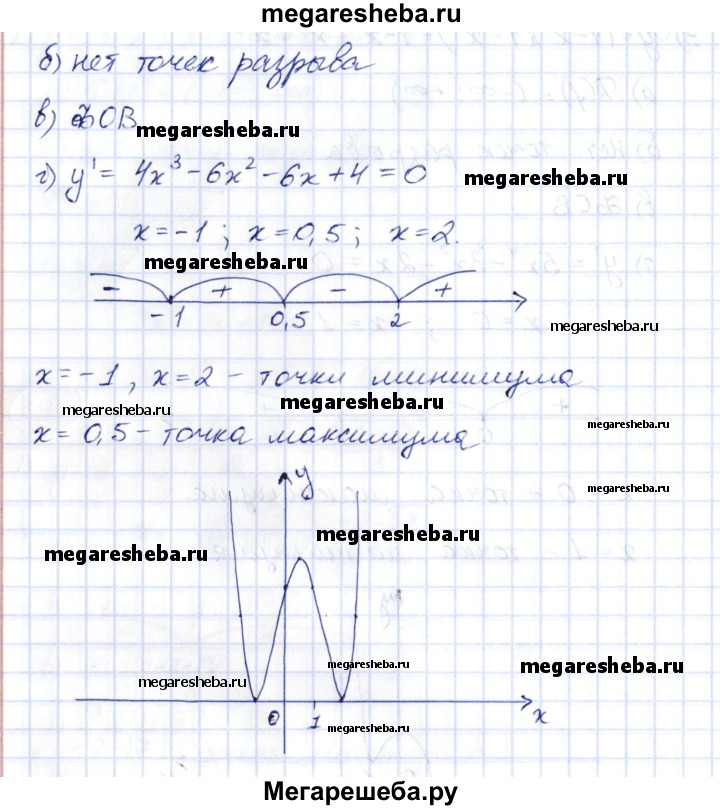 megaresheba.ru
б) нет точек разрыва
в) ОВ
megaresheba.ru
г) y' = 4x³ - 6x² - 6x + 4 = 0
megaresheba.ru
x = -1 ; x = 0,5 ; x = 2.
megaresheba.ru
- + - +
-1 0,5 2
megaresheba.ru
x = -1 , x = 2 - точки минимума
megaresheba.ru megaresheba.ru
x = 0,5 - точка максимума
megaresheba.ru
y
megaresheba.ru
megaresheba.ru
megaresheba.ru
megaresheba.ru
megaresheba.ru
megaresheba.ru
0 1 x
megaresheba.ru
Мегарешеба.ру